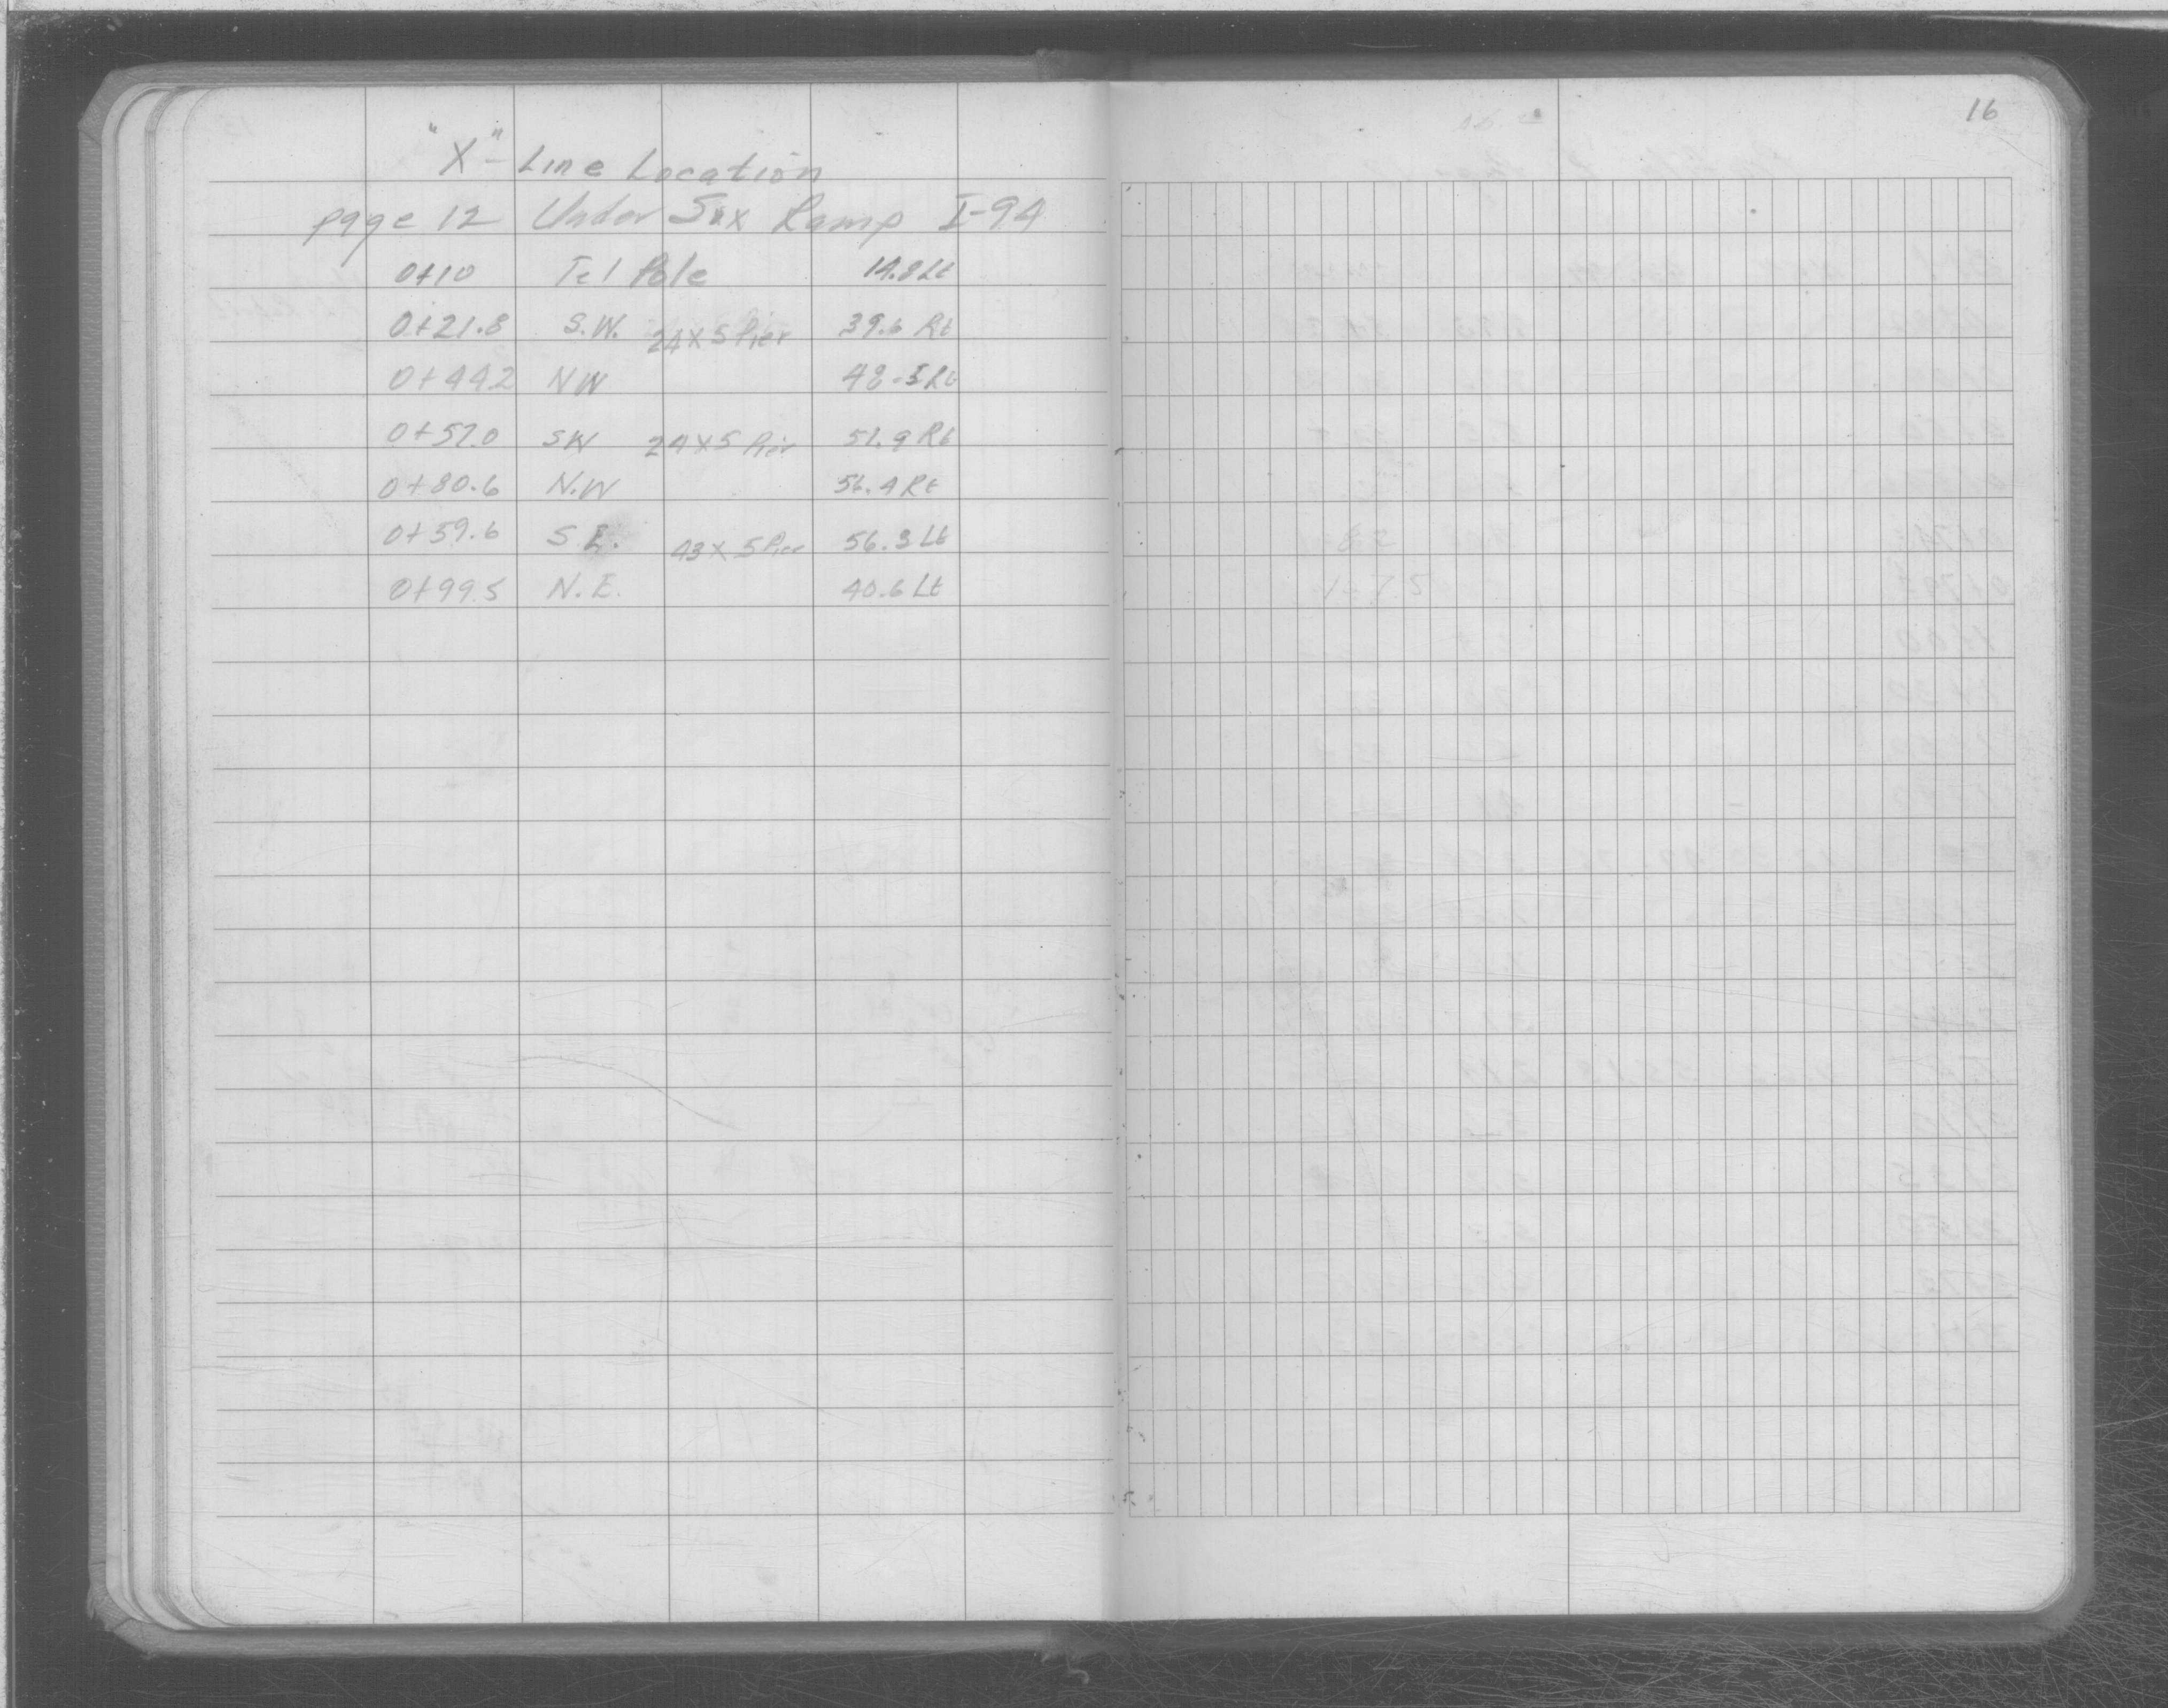 16
"X"- Line Location
page 12 Under Six Ramp I-94
0+10 Tel Pole 14.8 Lt
0+21.8 S.W. 24x5 Pier 39.6 Rt
0+44.2 NW 48.5 Rt
0+57.0 SW 24x5 Pier 51.9 Rt
0+80.6 N.W 56.4 Rt
0+59.6 S.E. 43x5 Pier 56.3 Lt
0+99.5 N.E. 40.6 Lt